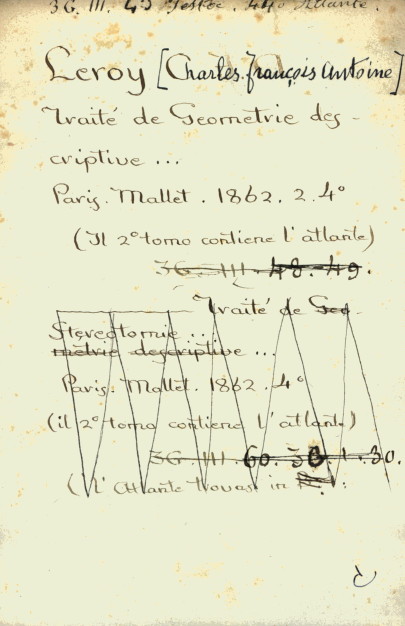 36. III. 45 Testo. 440 Atlante.
Leroy [Charles.françois Antoine]
Traité de Geometrie des-
criptive ...
Paris. Mallet. 1862. 2. 4°
(Il 2° tomo contiene l'atlante)
36. III. 48. 49.
Traité de Geo-
Stereotomie ...
metrie descriptive ...
Paris. Mallet. 1862. 4°
(il 2° tomo contiene l'atlante)
36. III. 60. 30.
(L'Atlante trovasi in